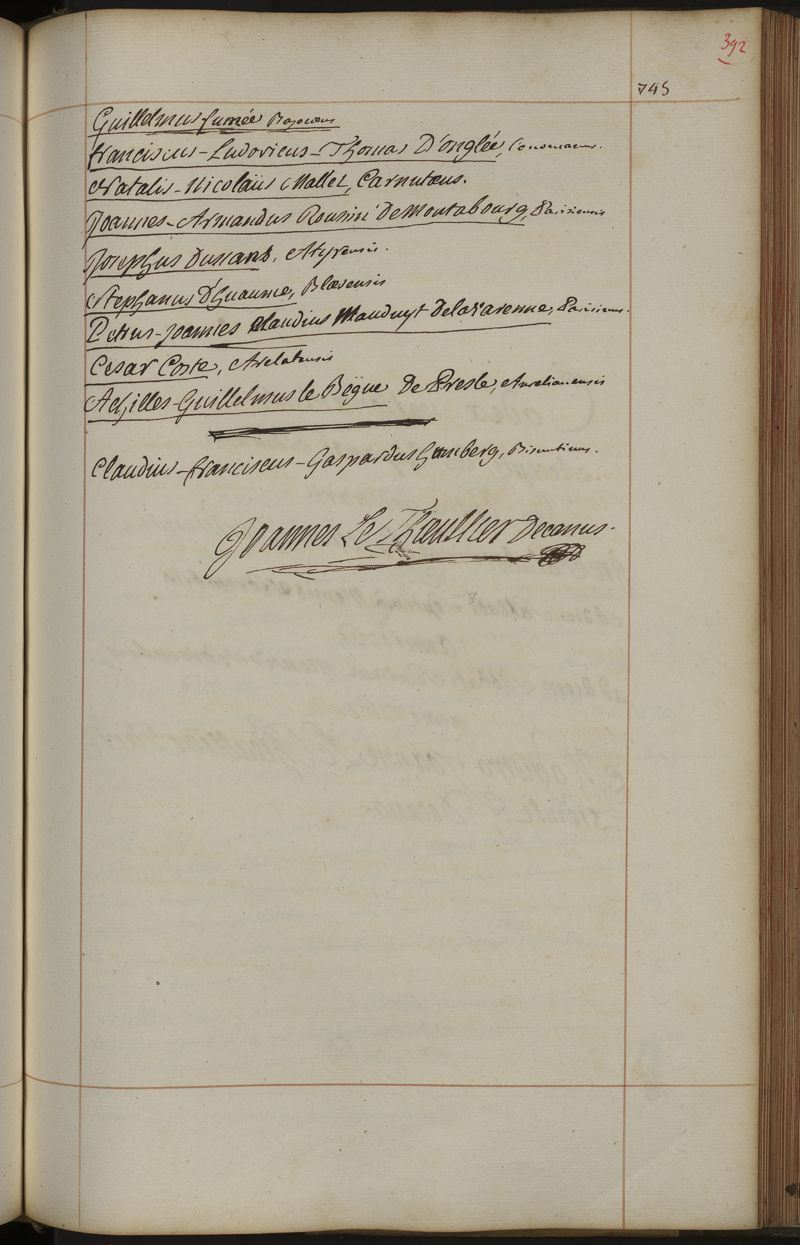 392
745
Guillelmus fumée Bajocæus
franciscus-Ludovicus-Thomas D'onglée, Cenomanus.
Natalis-Nicolaüs Mallet, Carnutæus.
Joannes-Armandus Roussin DeMontabourg, Parisiensis
Josephus Dussans, Atyrensis.
Stephanus D'huaume, Blæsensis
Petrus-joannes Claudius Mauduyt Delavarenne, Parisinus.
Cesar Coste, Arelatensis
Achilles-Guillelmus le Bègue De Presle, Aurelianensis
Claudius-franciscus-Gaspardus Bisuntinus.
Joannes Le Thieullier Decanus.